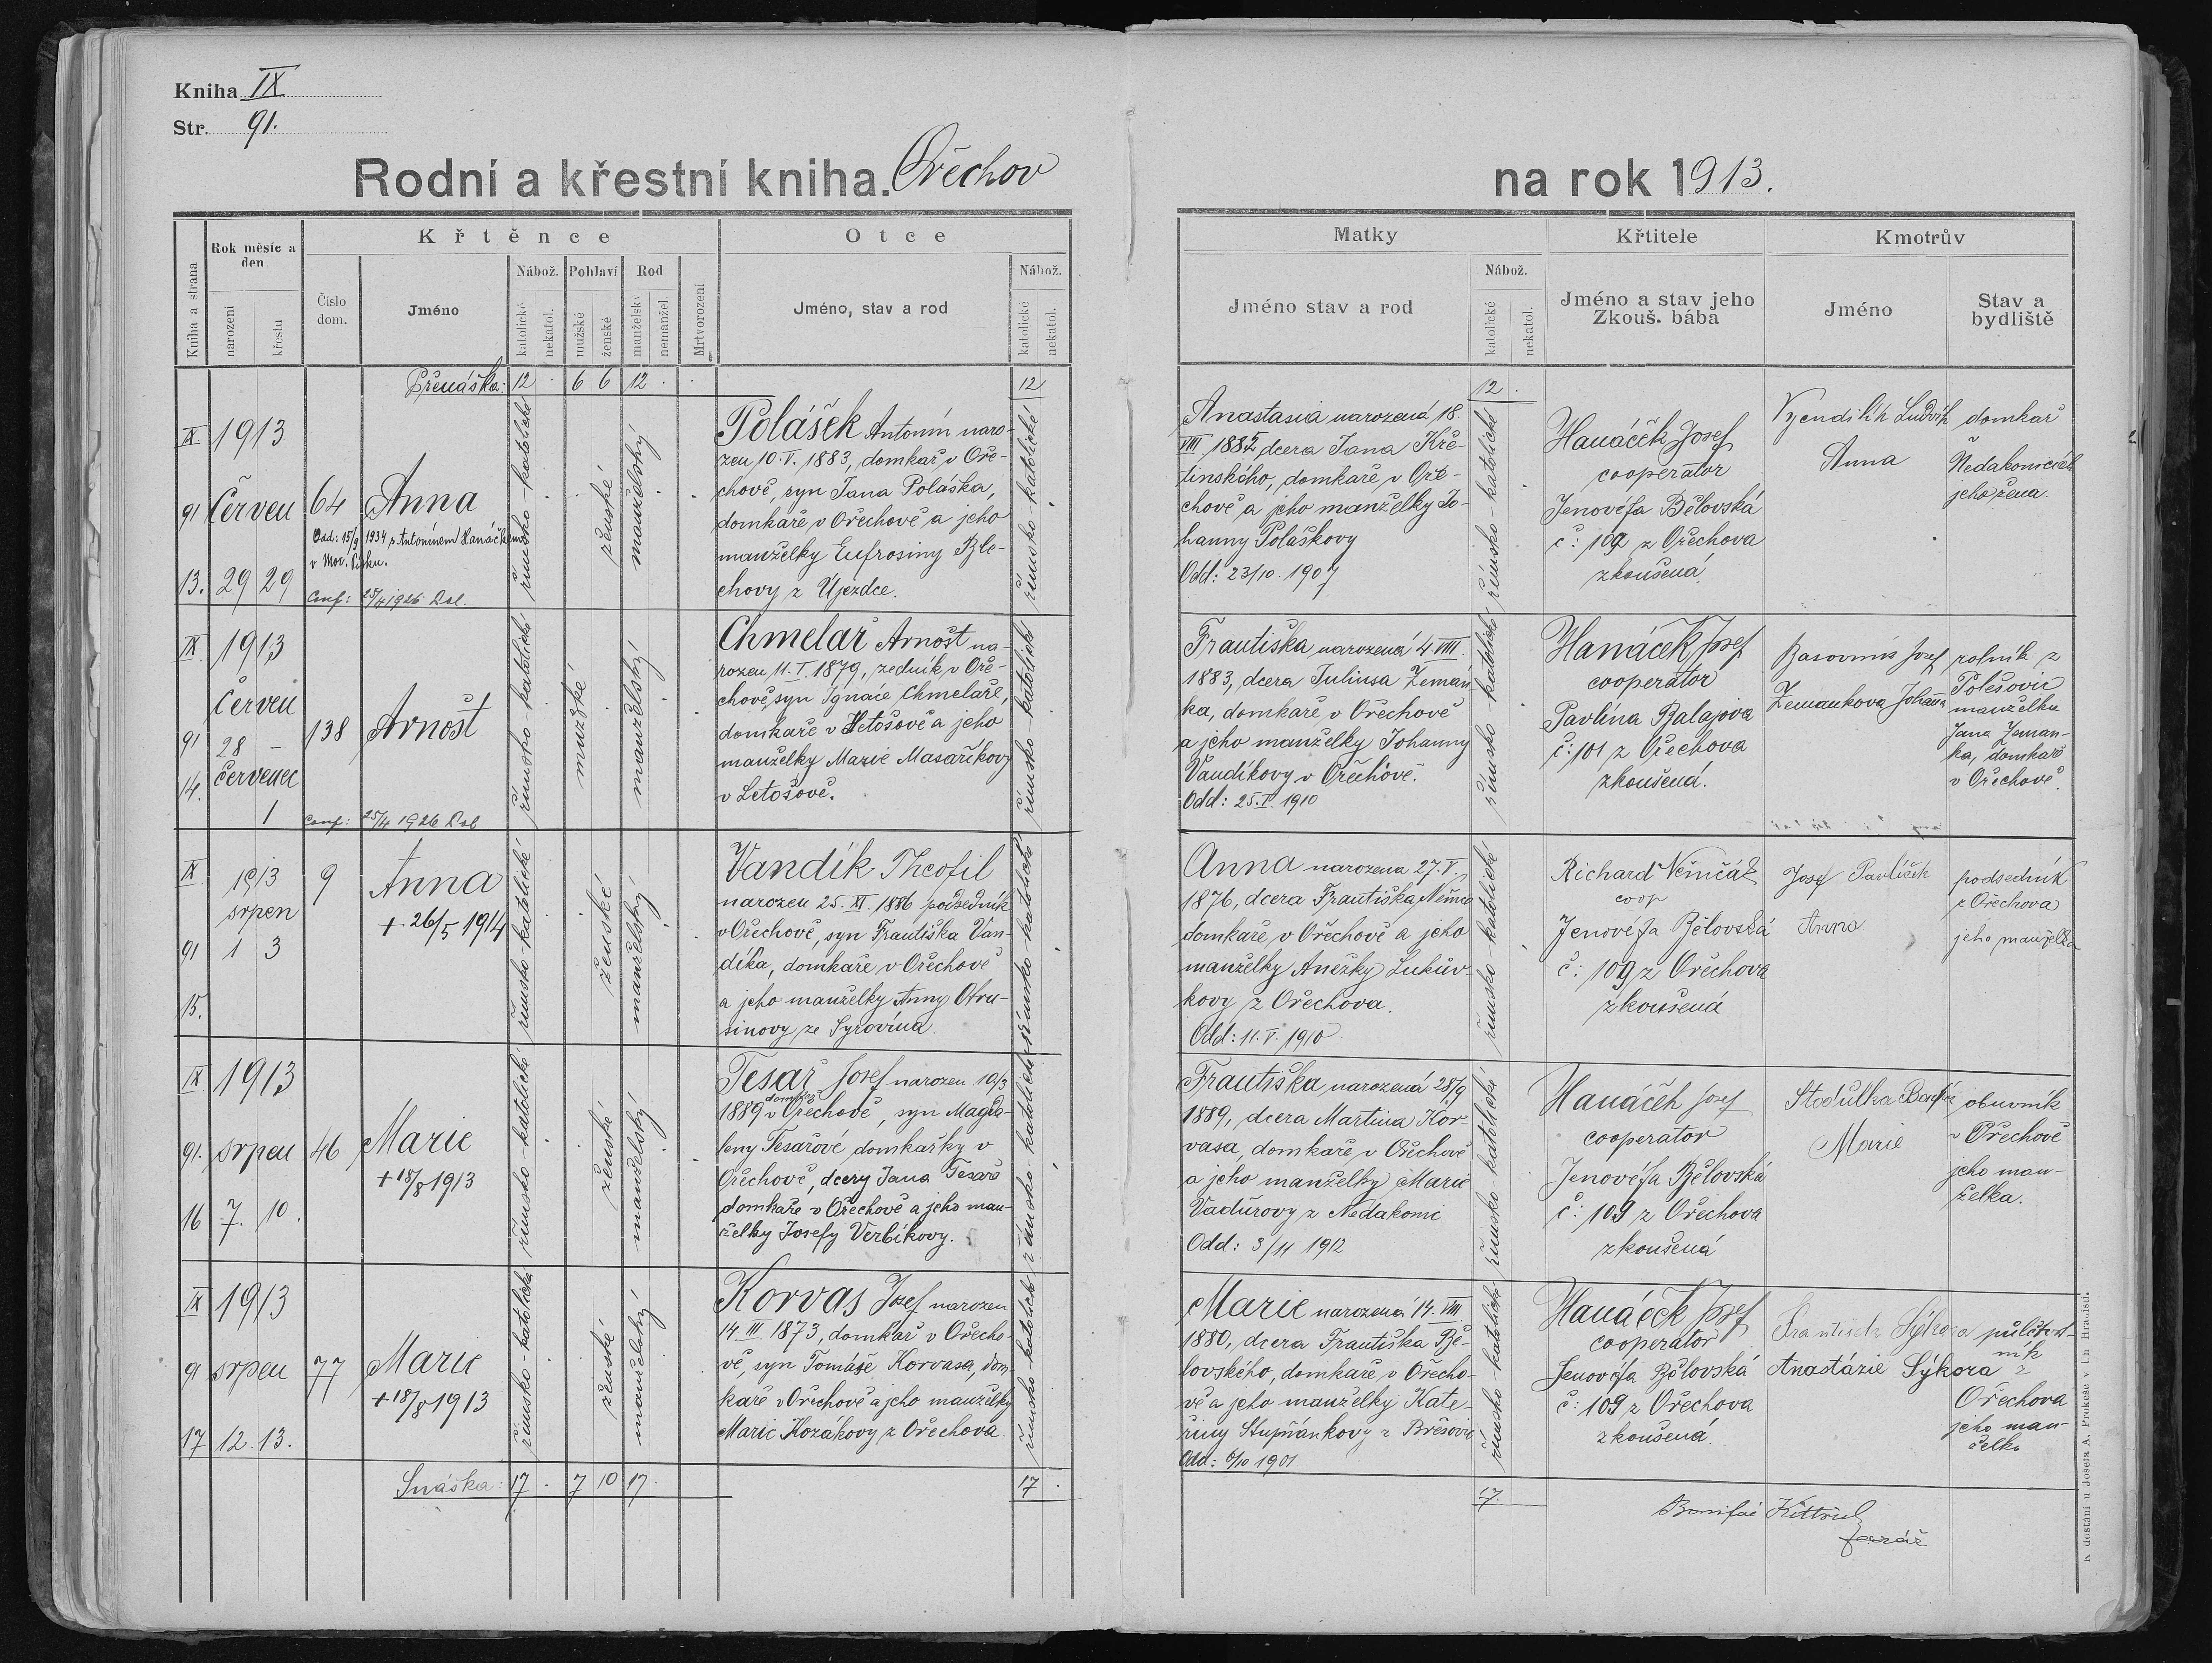 Kniha IX
Str. 91.
Rodní a křestní kniha. Ořechov
na rok 1913.
Kniha a strana
Rok měsíc a
den
narození
křestu
Křtěnce
Číslo
dom.
Jméno
Nábož.
katolické
nekatol.
Pohlaví
mužské
ženské
Rod
manželský
nemanžel.
Mrtvorození
Otce
Jméno, stav a rod
Nábož.
katolické
nekatol.
Matky
Jméno stav a rod
Nábož.
katolické
nekatol.
Křtitele
Jméno a stav jeho
Zkouš. bába
Kmotrův
Jméno
Stav a
bydliště
Přenáška: 12 . 6 6 12 . .
12
12 .
IX
91
13.
1913
Červen
29 29
64
Anna
Odd: 15/9 1934 s Antonínem Hanáčkem
v Mor. Písku.
Conf: 25/4 1926 Dol.
římsko-katolické
ženské
manželský
Polášek Antonín naro-
zen 10.V.1883, domkař v Oře-
chově, syn Jana Poláška,
domkaře v Ořechově a jeho
manželky Eufrosiny Ble-
chovy z Újezdce.
římsko-katolické
Anastasia narozená 18.
VIII 1885, dcera Jana Kře-
tinského, domkaře v Oře-
chově a jeho manželky Jo-
hanny Poláškovy
Odd: 23/10 1907
římsko-katolické
Hanáček Josef
cooperator
Jenovéfa Bělovská
č: 109 z Ořechova
zkoušená
Ludvík
Anna
domkař
Nedakonicích
jeho žena.
IX
91
14.
1913
Červen
28 –
Červenec
1
138
Arnošt
Conf: 25/4 1926 Dol
římsko-katolické
mužské
manželský
Chmelař Arnošt na-
rozen 11.I.1879, zedník v Oře-
chově, syn Ignáce Chmelaře,
domkaře v Letošově a jeho
manželky Marie Masaříkovy
v Letošově.
římsko-katolické
Františka narozená 4.VIII.
1883, dcera Juliusa Zemán-
ka, domkaře v Ořechově
a jeho manželky Johanny
Vandíkovy v Ořechově.
Odd: 25.I. 1910
římsko-katolické
Hanáček Josef
cooperator
Pavlína Balajova
č: 101 z Ořechova
zkoušená.
Josef
Zemankova Johanna
rolník z
Polešovic
manželka
Jana Zeman-
ka, domkaře
v Ořechově.
IX
91
15.
1913
srpen
1 3
9
Anna
+ 26/5 1914
římsko-katolické
ženské
manželský
Vandík Theofil
narozen 25.XI.1886 podsedník
v Ořechově, syn Františka Van-
díka, domkaře v Ořechově
a jeho manželky Anny Otru-
sinovy ze Syrovína.
římsko-katolické
Anna narozena 27.V.
1876, dcera Františka Němce
domkaře v Ořechově a jeho
manželky Anežky Lukův-
kovy z Ořechova.
Odd: 11.V. 1910
římsko-katolické
Richard Němčák
coop
Jenovéfa Bělovská
č: 109 z Ořechova
zkoušená
Josef Pavlíček
Anna
podsedník
z Ořechova
jeho manželka
IX
91.
16
1913
srpen
7. 10.
46
Marie
+ 18/8 1913
římsko-katolické
ženské
manželský
Tesař Josef narozen 10/3
domkař
1889 v Ořechově, syn Magda-
leny Tesařové domkařky v
Ořechově, dcery Jana Tesaře
domkaře v Ořechově a jeho man-
želky Josefy Verbíkovy.
římsko-katolické
Františka narozená 28/9
1889, dcera Martina Kor-
vasa, domkaře v Ořechově
a jeho manželky Marie
Vaďurovy z Nedakonic
Odd: 3/11 1912
římsko-katolické
Hanáček Josef
cooperator
Jenovéfa Bělovská
č: 109 z Ořechova
zkoušená
Stodulka
Marie
obuvník
v Ořechově
jeho man-
želka.
IX
9
17
1913
srpen
12. 13.
77
Marie
+ 18/8 1913
římsko-katolické
ženské
manželský
Korvas Josef narozen
14.III.1873, domkař v Ořecho-
vě, syn Tomáše Korvasa, dom-
kaře v Ořechově a jeho manželky
Marie Kozákovy z Ořechova
římsko-katolické
Marie narozena 14.VIII
1880, dcera Františka Bě-
lovského, domkaře v Ořecho-
vě a jeho manželky Kate-
řiny Stupňánkovy z Břesovic
Odd: 6/10 1901
římsko-katolické
Hanáček Josef
cooperator
Jenovéfa Bělovská
č: 109 z Ořechova
zkoušená
František Sýkora
Anastázie Sýkora
půlčtvrt-
ník
z
Ořechova
jeho man-
želka
Snáška: 17 . 7 10 17 .
17 .
17.
Bonifác
farář
K dostání u Josefa A. Prokeše v Uh. Hradišti.